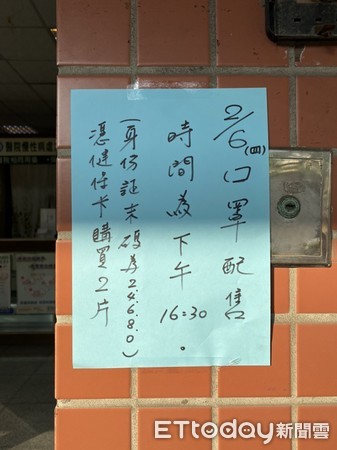 2/6(四)口罩配售
時間為下午
16:30。
(身份証末碼為2.4.6.8.0)
憑健保卡購買2片
ETtoday新聞雲